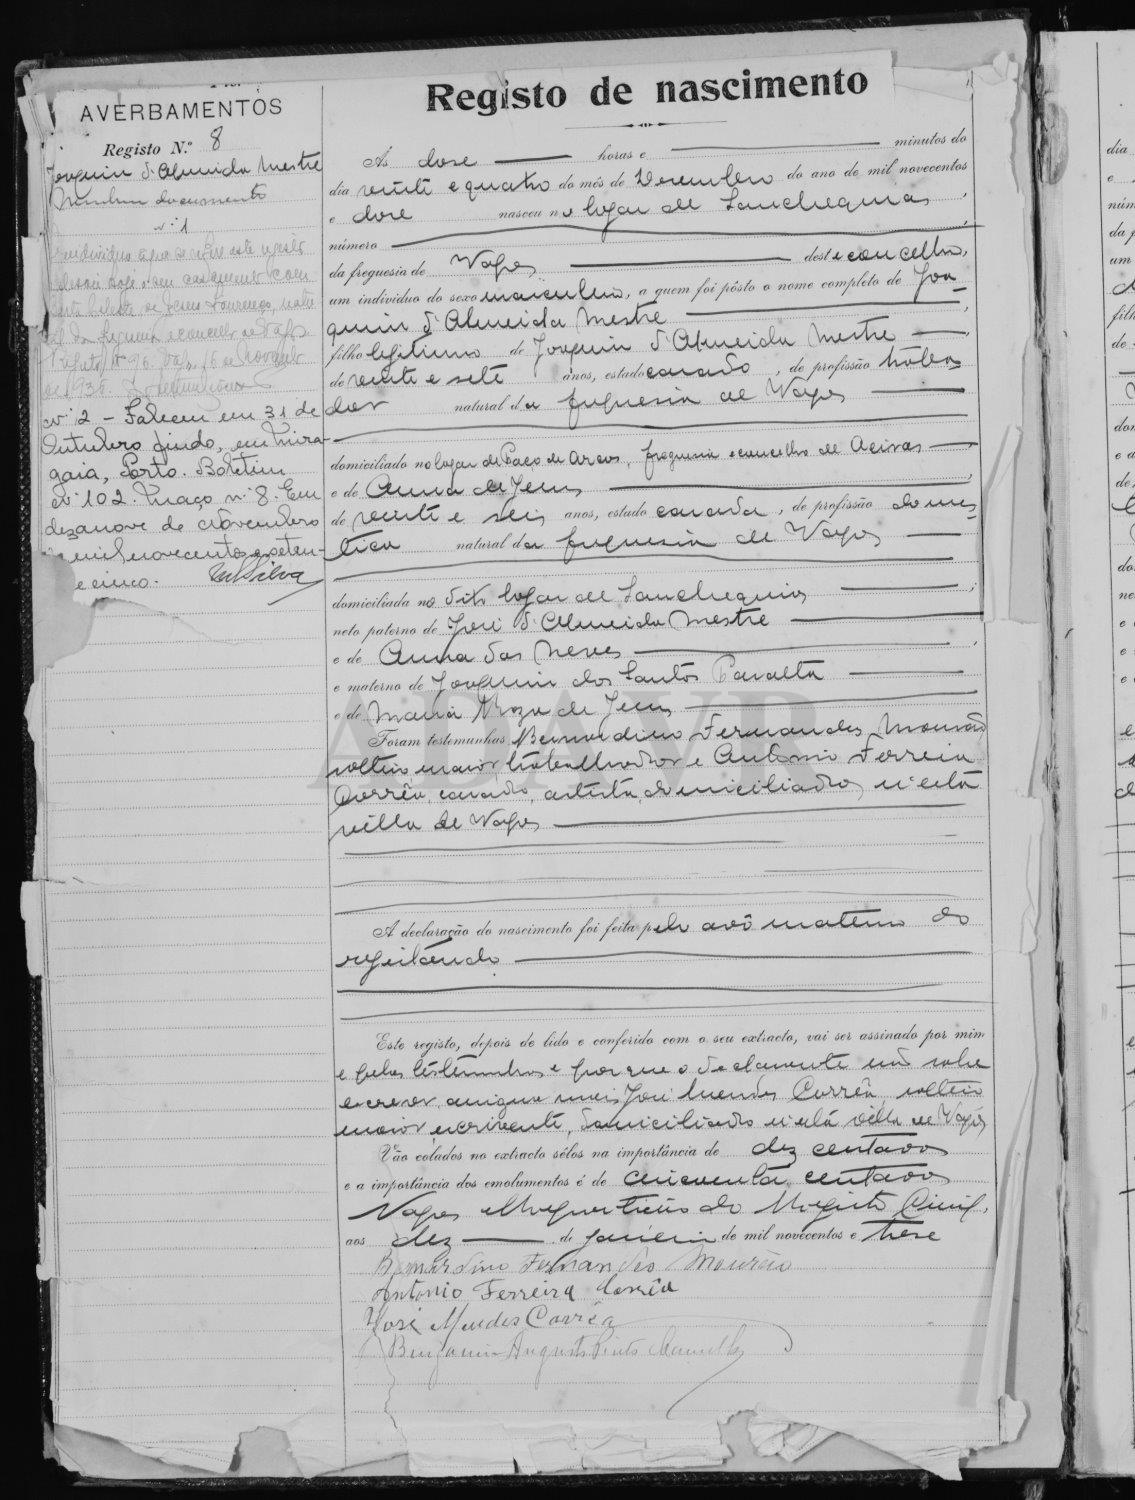 AVERBAMENTOS
Registo N.º 8
Joaquim d'Almeida Mestre
Nenhum documento
nº 1
nº 2 - Faleceu em 31 de
Outubro findo, em Mira-
gaia, Porto. Boletim
nº 102. Maço nº 8. Em
dezanove de Novembro
de mil novecentos e seten-
e cinco. Silva
Registo de nascimento
Ás dose horas e minutos do
dia vinte e quatro do mês de Dezembro do ano de mil novecentos
e dose nasceu no logar de Sanchequias
número
da freguesia de Vagos deste concelho,
um individuo do sexo masculino, a quem foi pôsto o nome completo de Joa-
quim d'Almeida Mestre
filho legitimo de Joaquim d'Almeida Mestre
de vinte e sete anos, estado casado, de profissão traba-
dor natural da freguesia de Vagos
domiciliado no logar de Paço de Arcos, freguesia e concelho de Oeiras
e de Anna de Jesus
de vinte e seis anos, estado casada, de profissão domes-
tica natural da freguesia de Vagos
domiciliada no dito logar de Sanchequias
neto paterno de José d'Almeida Mestre
e de Anna das Neves
e materno de Joaquim dos Santos Paralta
e de Maria Roza de Jesus
Foram testemunhas Bernardino Fernandes Mourão
solteiro, maior, trabalhador e Antonio Ferreira
Corrêa, casado, artista, domiciliados n'esta
villa de Vagos
A declaração do nascimento foi feita pelo avô materno do
registando
Este registo, depois de lido e conferido com o seu extracto, vai ser assinado por mim
e pelas testemunhas e porque o declarante não sabe
escrever, assigna mais José Mendes Corrêa, solteiro
maior, escrivente, domiciliado n'esta villa de Vagos
Vão colados no extracto sêlos na importância de dez centavos
e a importância dos emolumentos é de cincoenta centavos
Vagos e Repartição do Registo Civil,
aos dez de janeiro de mil novecentos e treze
Bernardino Fernandes Mourão
Antonio Ferreira Corrêa
José Mendes Corrêa
Benjamim Augusto Pinto